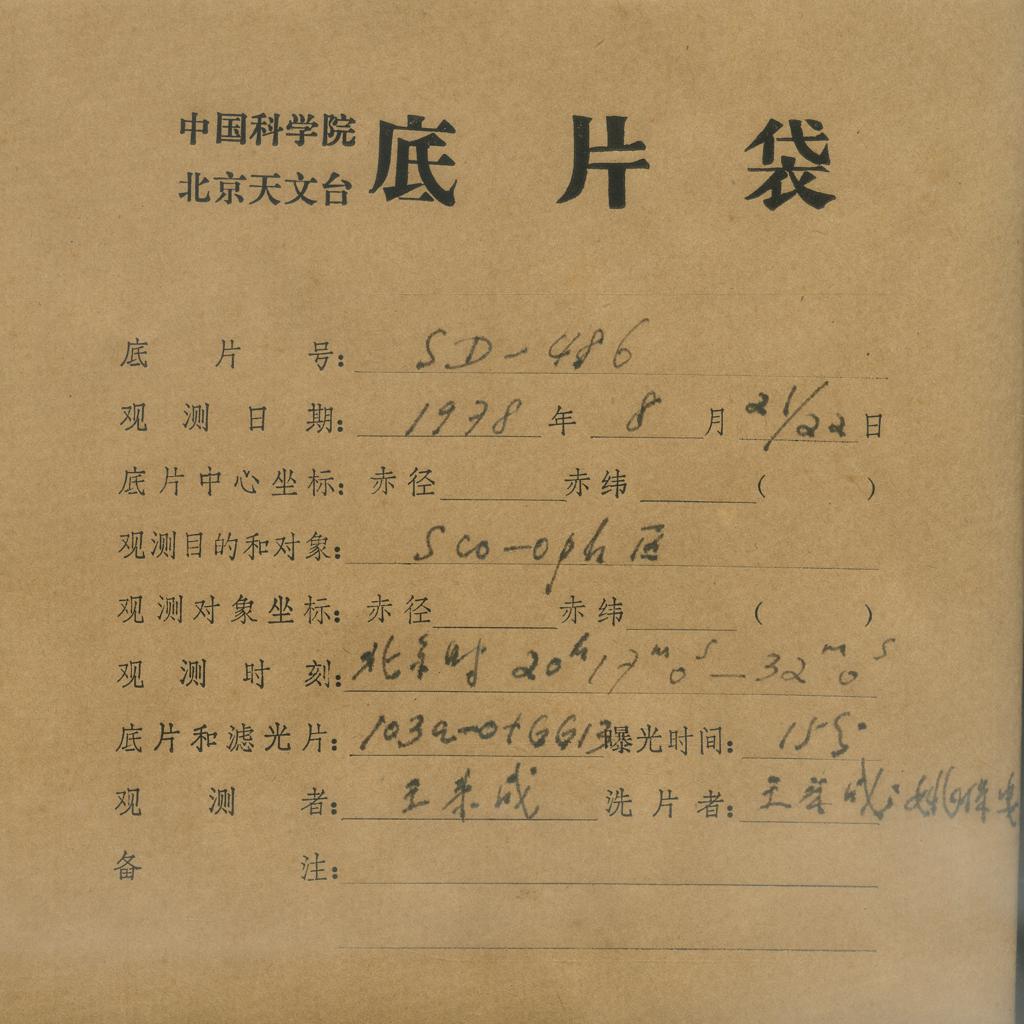 中国科学院
北京天文台
底片袋
底片号: SD-486
观测日期: 1978年8月21/22日
底片中心坐标: 赤径 赤纬 ( )
观测目的和对象: Sco-oph 区
观测对象坐标: 赤径 赤纬 ( )
观测时刻: 北京时 20h17m0s—32m0s
底片和滤光片: 103a-O+GG13 曝光时间: 15分
观测者: 王来成 洗片者: 王 成
备注: